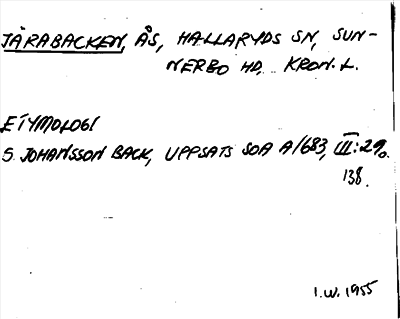 JÄRABACKEN, ÅS, HALLARYDS SN, SUN-
NERBO HD, KRON. L.
ETYMOLOGI
S. JOHANSSON BACK, UPPSATS SOA A/683, III:29.
138.
I.W. 1955